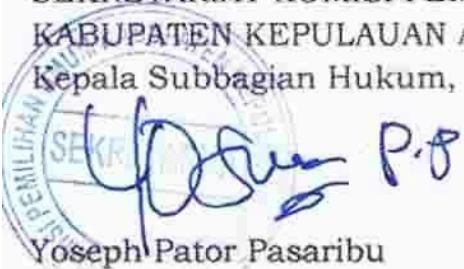 KABUPATEN KEPULAUAN A
Kepala Subbagian Hukum,
SEKR
P.P
Yoseph Pator Pasaribu